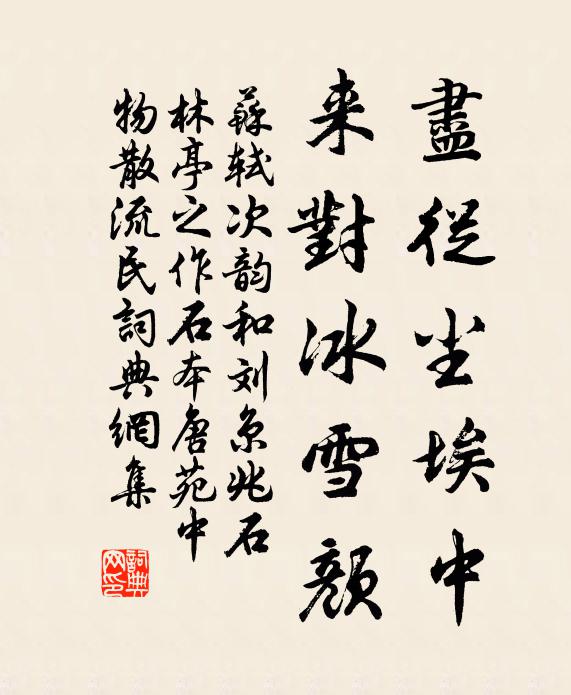 盡從尘埃中
来對冰雪顏
蘇轼次韵和刘京兆石
林亭之作石本唐苑中
物散流民詞典網集
詞典
网印